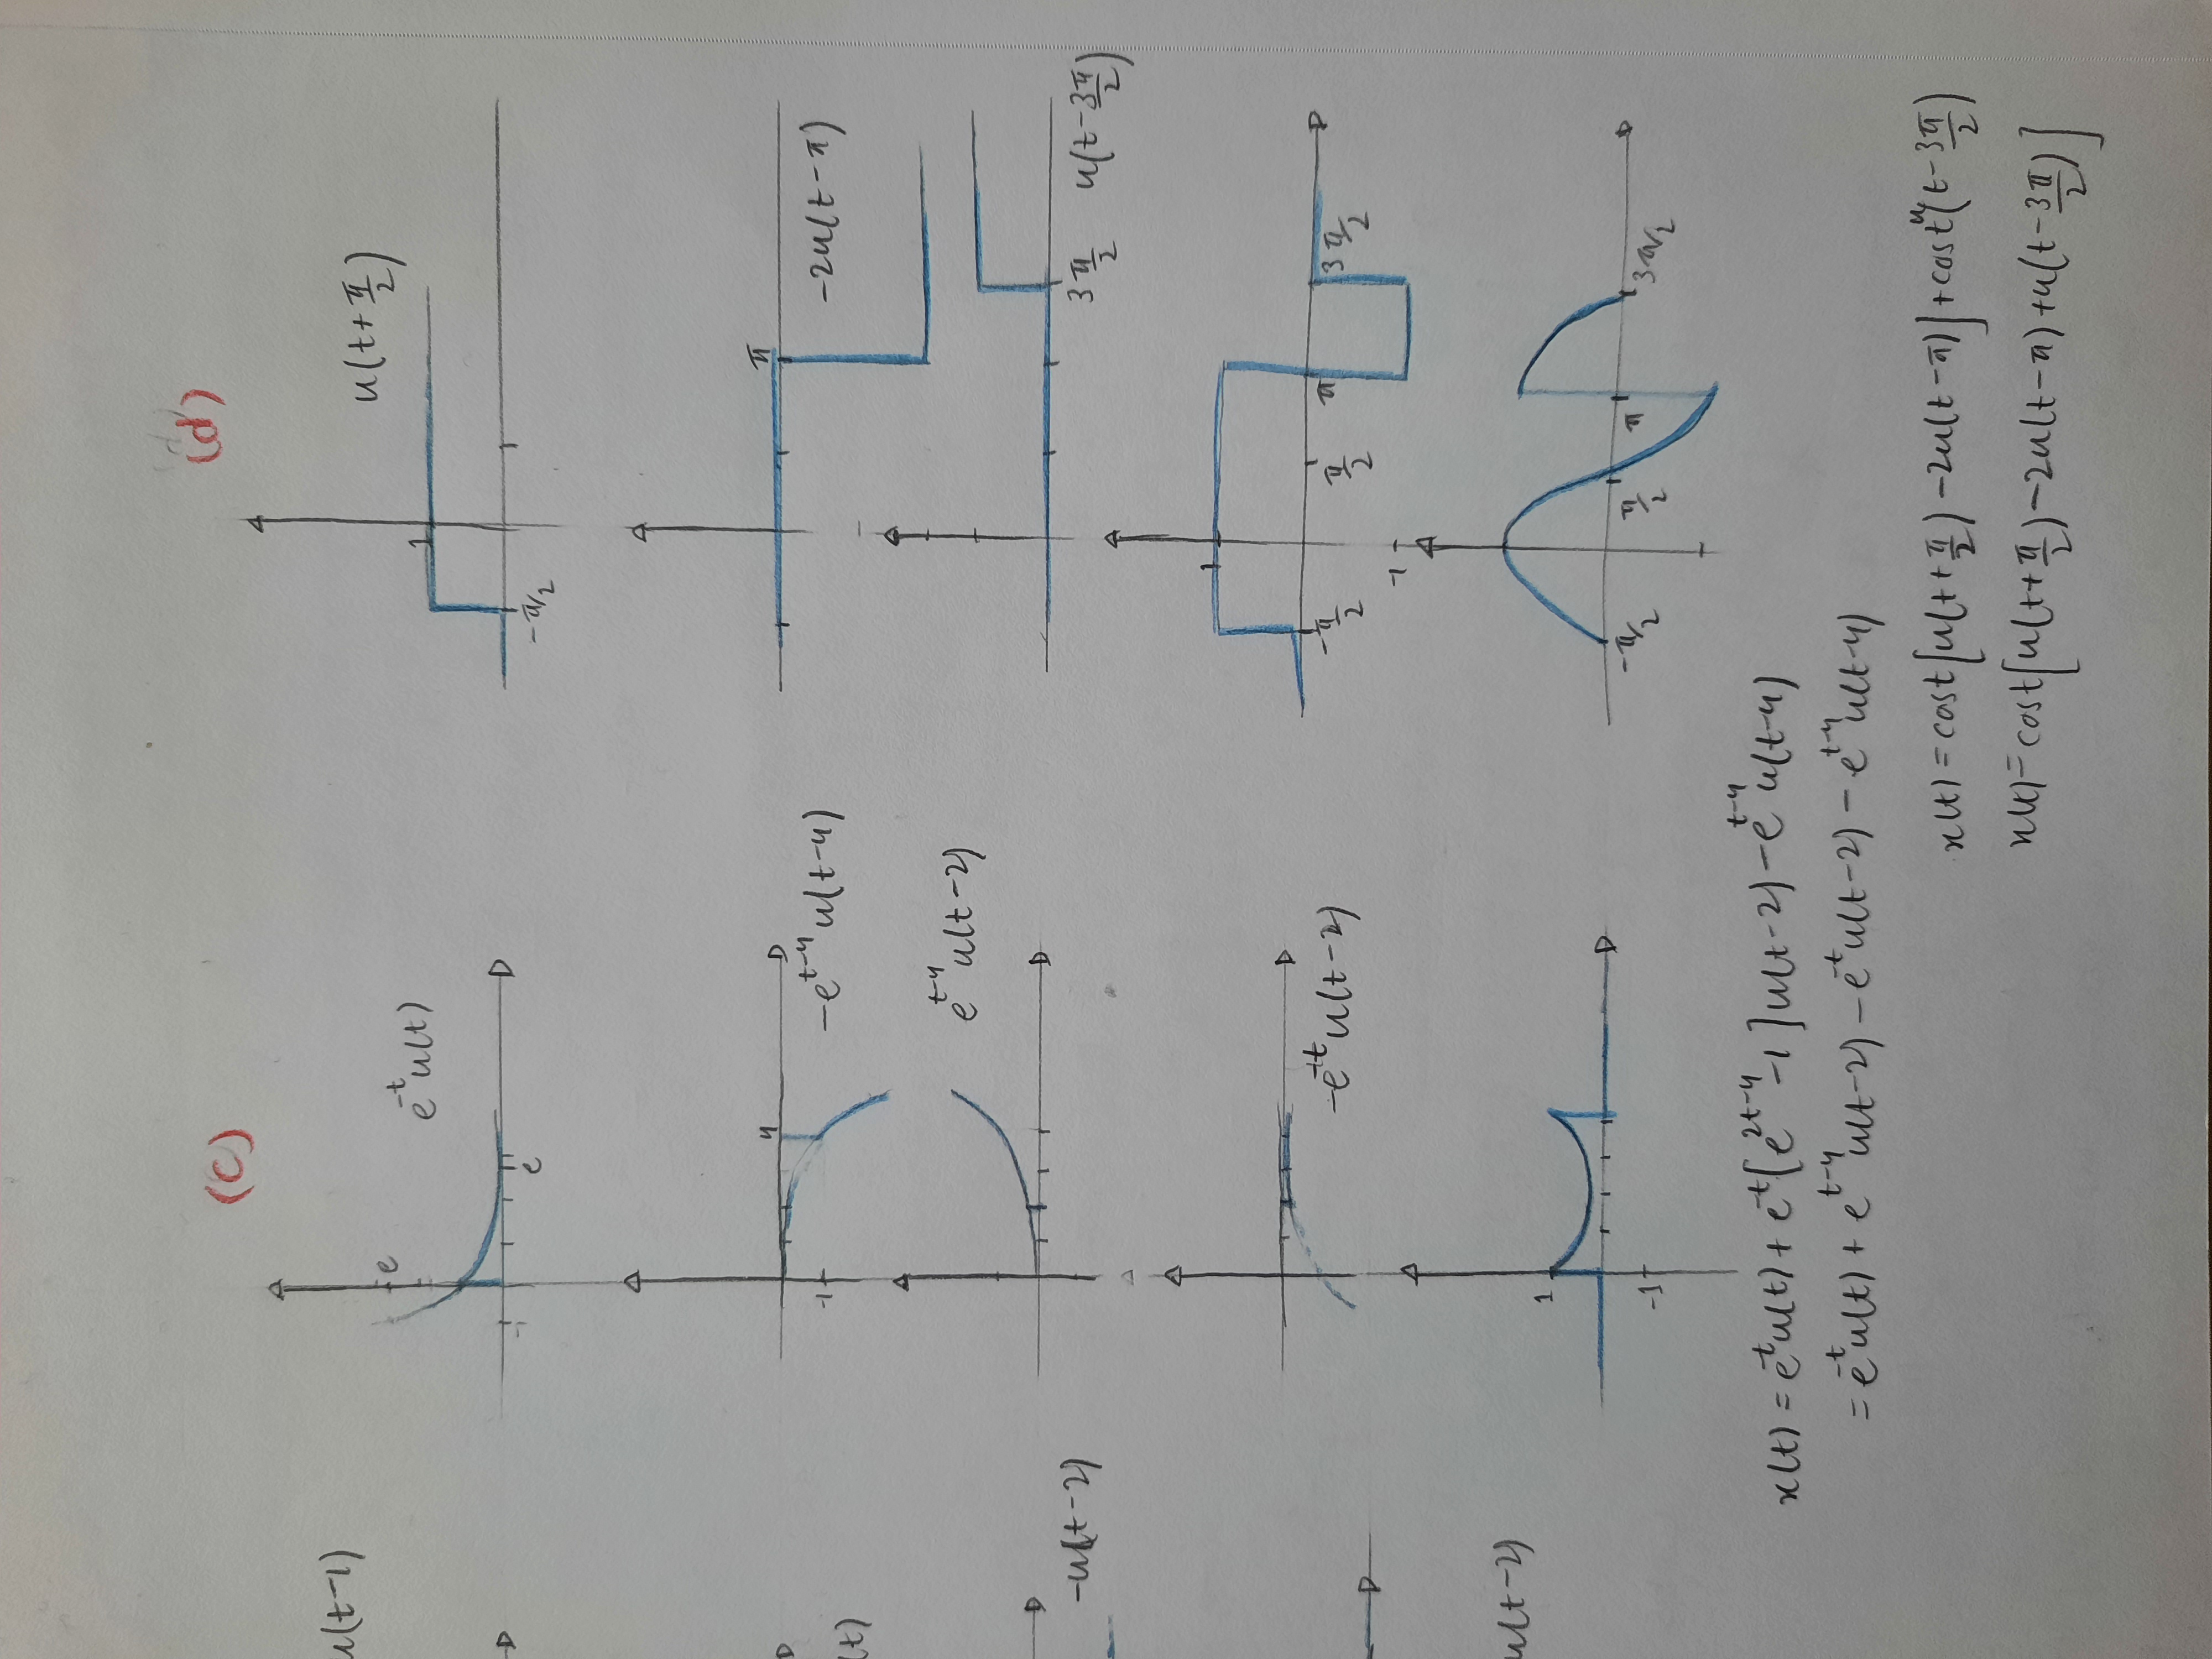 u(t-1)
(t)
-u(t-2)
u(t-2)
(c)
e^{-t}u(t)
e
-1
e
-e^{t-4}u(t-4)
4
-1
e^{t-4}u(t-2)
-e^{-t}u(t-2)
1
-1
x(t) = e^{-t}u(t) + e^{-t}[e^{2t-4} -1]u(t-2) - e^{t-4}u(t-4)
= e^{-t}u(t) + e^{t-4}u(t-2) - e^{-t}u(t-2) - e^{t-4}u(t-4)
(d)
u(t+π/2)
1
-π/2
π
-2u(t-π)
3π/2
u(t-3π/2)
1
-π/2
π/2
π
3π/2
-1
-π/2
π/2
π
3π/2
x(t) = cost[u(t+π/2) -2u(t-π)] + cost u(t-3π/2)
x(t) = cost[u(t+π/2) -2u(t-π) + u(t-3π/2)]